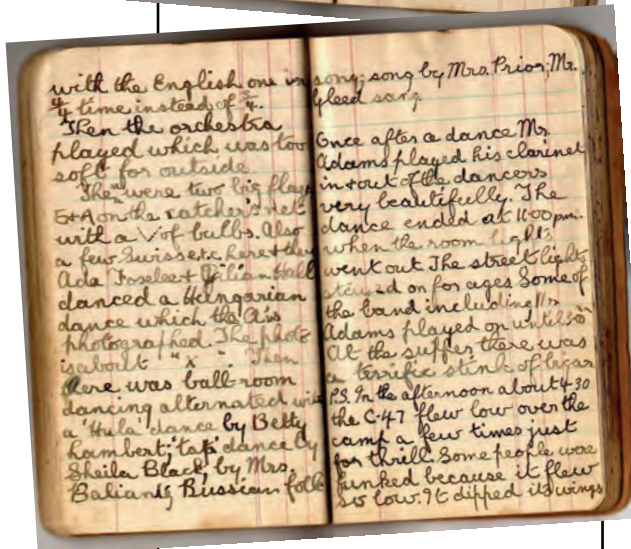 with the English one in
4/4 time instead of 3/4.
Then the orchestra
played which was too
soft for outside
There were two big flags
E+A on the catcher's net
with a V of bulbs. Also
a few Swiss etc. here & there
Ada Foselee + Gillian Hall
danced a Hungarian
dance which the A's
photographed. The photo
is about " x ". Then
there was ball-room
dancing alternated with
a 'Hula' dance by Betty
Lambert; 'tap' dance by
Sheila Black; by Mrs.
Balian; Russian folk
song; song by Mrs. Prior; Mr.
Gleed sang.
Once after a dance Mr.
Adams played his clarinet
in + out of the dancers
very beautifully. The
dance ended at 11.00 pm.
when the room lights
went out The street lights
stayed on for ages Some of
the band including Mr.
Adams played on until
At the supper there was
a terrific stink of
P.S. In the afternoon about 4-30
the C-47 flew low over the
camp a few times just
for thrill. Some people were
funked because it flew
so low. It dipped its wings